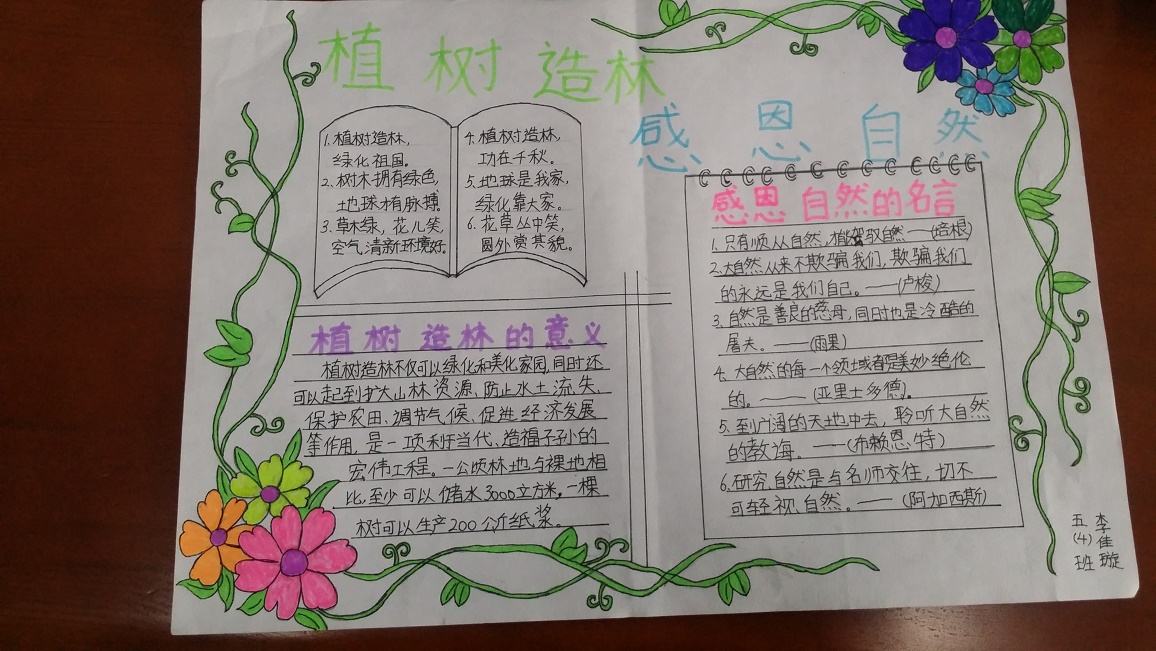 植树造林
感恩自然
1.植树造林,
绿化祖国。
2.树木拥有绿色,
地球才有脉搏。
3.草木绿,花儿笑,
空气清新环境好。
4.植树造林,
功在千秋。
5.地球是我家,
绿化靠大家。
6.花草丛中笑,
园外赏其貌。
植树造林的意义
植树造林不仅可以绿化和美化家园,同时还
可以起到扩大山林资源、防止水土流失、
保护农田、调节气候、促进经济发展
等作用,是一项利于当代、造福子孙的
宏伟工程。一公顷林地与裸地相
比,至少可以储水3000立方米,一棵
树可以生产200公斤纸浆。
感恩自然的名言
1.只有顺从自然,才能驾驭自然——(培根)
2.大自然从来不欺骗我们,欺骗我们
的永远是我们自己。——(卢梭)
3.自然是善良的慈母,同时也是冷酷的
屠夫。——(雨果)
4.大自然的每一个领域都是美妙绝伦
的。——(亚里士多德)。
5.到广阔的天地中去,聆听大自然
的教诲。——(布赖恩.特)
6.研究自然是与名师交往,切不
可轻视自然。——(阿加西斯)
五(4)班
李佳璇